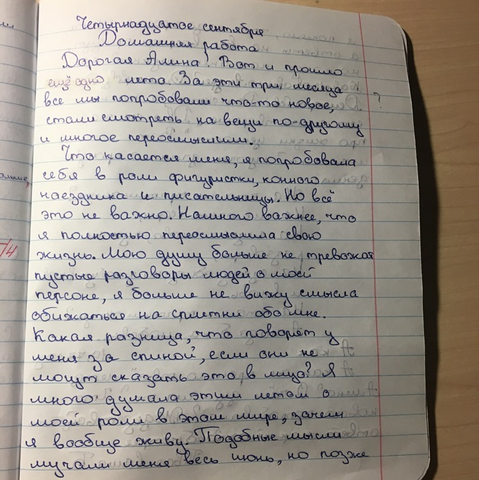 Четырнадцатое сентября
Домашняя работа
Дорогая Алина! Вот и прошло
ещё одно лето. За эти три месяца
все мы попробовали что-то новое,
стали смотреть на вещи по-другому
и многое переосмыслили.
Что касается меня, я попробовала
себя в роли фигуристки, конного
наездника и писательницы. Но всё
это не важно. Намного важнее, что
я полностью переосмыслила свою
жизнь. Мою душу больше не тревожат
пустые разговоры людей о моей
персоне, я больше не вижу смысла
обижаться на сплетни обо мне.
Какая разница, что говорят у
меня за спиной, если они не
могут сказать это в лицо? Я
много думала этим летом о
моей роли в этом мире, зачем
я вообще живу. Подобные мысли
мучали меня весь июнь, но позже